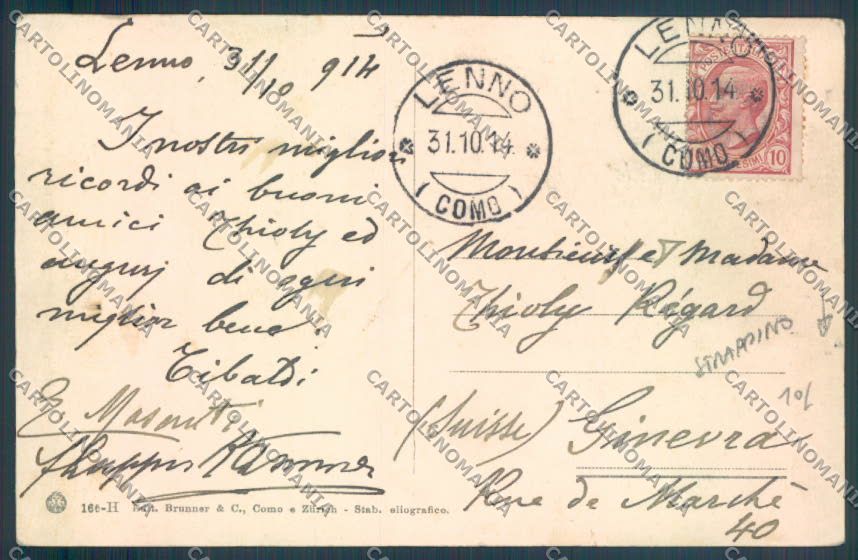 Lenno, 31/10 914
I nostri migliori
ricordi ai buoni
amici Thioly ed
auguri di ogni
miglior bene.
Tibaldi
E.
LENNO
31.10.14
(COMO)
LENNO
31.10.14
(COMO)
10
Monsieur et Madame
Thioly Régard
STRAPPINO
10/
(Suisse) Ginevra
Rue de Marché
40
166-H Edit. Brunner & C., Como e Zürich - Stab. eliografico.
CARTOLINOMANIA